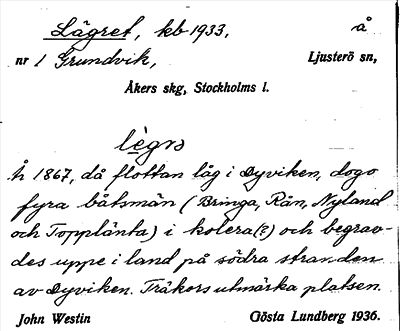 Lägret, kb 1933, å
nr 1 Grundvik, Ljusterö sn,
Åkers skg, Stockholms l.
lègrə
År 1867, då flottan låg i Dyviken, dogo
fyra båtsmän (Bringa, Rån, Nyland
och Topplänta) i kolera(?) och begrav-
des uppe i land på södra stranden
av Dyviken. Träkors utmärka platsen.
John Westin Gösta Lundberg 1936.